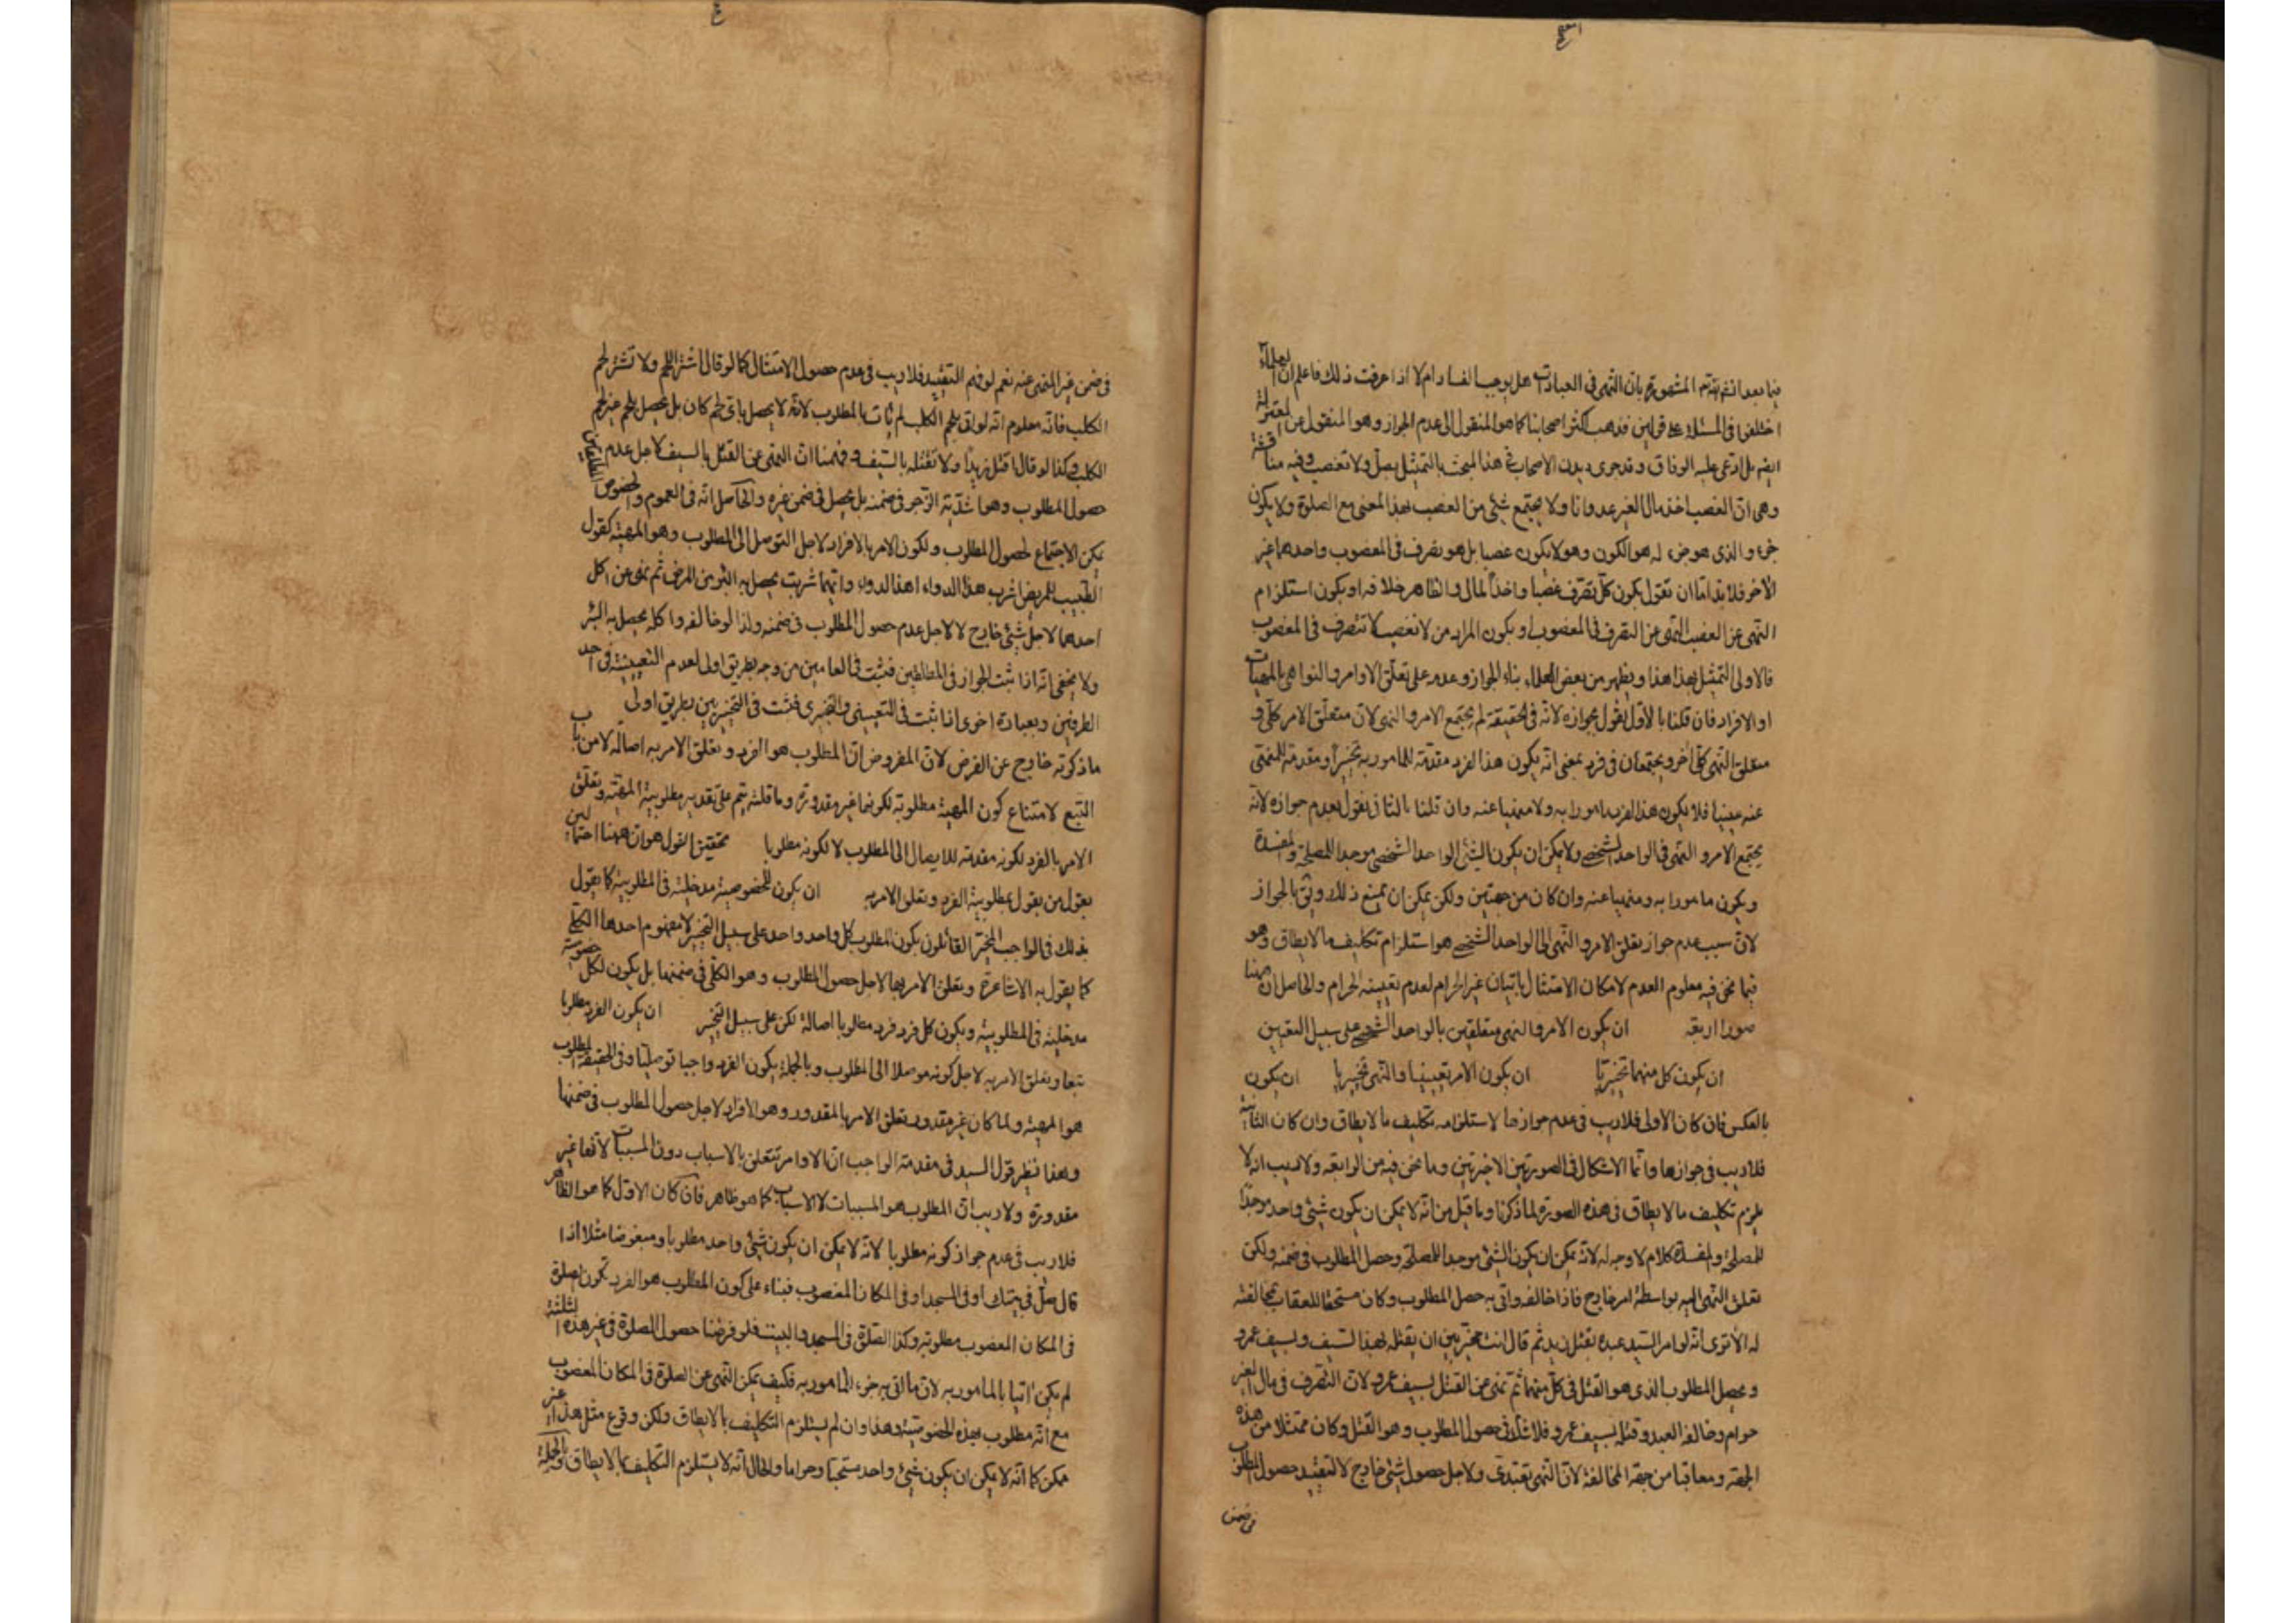 فيما بعد انشاء الله تم المشهورة بان النهى فى العبادات هل يوجب الفساد ام لا اذا عرفت ذلك فاعلم ان العلماء
اختلفوا فى المسئلة على قولين فذهب اكثر اصحابنا كما هو المنقول الى عدم الجواز وهو المنقول عن المعتزلة
ايضا بل ادعى عليه الوفاق وقد جرى ديدن الاصحاب فى هذا المبحث بالتمثيل بصل ولا تغصب وفيه مناقشة
وهى ان الغصب اخذ مال الغير عدوانا ولا يجتمع شئ من الغصب بهذا المعنى مع الصلوة ولا يكون
جزء والذى هو جزء له هو الكون وهو لا يكون غصبا بل هو تصرف فى المغصوب واحدهما غير
الاخر فلابد اما ان نقول بكون كل تصرف غصبا واخذا لمال والظاهر خلافه او بكون استلزام
النهى عن الغصب النهى عن التصرف فى المغصوب او بكون المراد من لا تغصب لا تتصرف فى المغصوب
فالاولى التمثيل بهذا هذا ويظهر من بعض العلماء بناء الجواز وعدمه على تعلق الاوامر والنواهى بالمهيات
او الافراد فان قلنا بالاول نقول بجوازه لانه فى الحقيقة لم يجتمع الامر والنهى لان متعلق الامر كلى و
متعلق النهى كلى اخر ويجتمعان فى فرد بمعنى انه يكون هذا الفرد مقدمة للمامور به تخييرا ومقدمة للمنهى
عنه عينيا فلا يكون هذا الفرد مامورا به ولا منهيا عنه وان قلنا بالثانى نقول بعدم جوازه لانه
يجتمع الامر والنهى فى الواحد الشخصى ولا يمكن ان يكون الشئ الواحد الشخصى موجدا للمصلحة والمفسدة
ويكون مامورا به ومنهيا عنه وان كان من جهتين ولكن يمكن ان يمنع ذلك وبقى بالجواز
لان سبب عدم جواز تعلق الامر والنهى الى الواحد الشخصى هو استلزام تكليف ما لا يطاق وهو
فيما نحن فيه معلوم العدم لامكان الامتثال باتيان غير الحرام لعدم تعيينه الحرام والحاصل ان ههنا
صورا اربعة ان يكون الامر والنهى متعلقين بالواحد الشخصى على سبيل التعيين
ان يكون كل منهما تخييريا ان يكون الامر تعيينيا والنهى تخييريا ان يكون
بالعكس فان كان الاولى فلا ريب فى عدم جوازها لاستلزامه تكليف ما لا يطاق وان كان الثانية
فلا ريب فى جوازها وانما الاشكال فى الصورتين الاخيرتين وما نحن فيه من الرابعة ولا ريب انه لا
يلزم تكليف ما لا يطاق فى هذه الصورة لما ذكرنا وما قيل من انه لا يمكن ان يكون شئ واحد موجدا
للمصلحة والمفسدة كلام لا وجه له لانه يمكن ان يكون الشئ موجدا للمصلحة وحصل المطلوب فى ضمنه ولكن
تعلق النهى اليه بواسطة امر خارج فاذا خالفه واتى به حصل المطلوب وكان مستحقا للعقاب بمخالفته
له الا ترى انه لو امر السيد عبده بقتل زيد ثم قال انت مخير بين ان يقتله بهذا السيف وبسيف عمرو
ويحصل المطلوب الذى هو القتل فى كل منهما ثم نهى عن القتل بسيف عمرو لان التصرف فى مال الغير
حرام وخالفه العبد وقتله بسيف عمرو فلا شك فى حصول المطلوب وهو القتل وكان ممتثلا من هذه
الجهة ومعاقبا من جهة المخالفة لان النهى تعبدى ولاجل حصول شئ خارج لا لتقييد حصول المطلوب
فى ضمن
فى ضمن غير المنهى عنه نعم لو فهم التقييد فلا ريب فى عدم حصول الامتثال كما لو قال اشتر اللحم ولا تشتر لحم
الكلب فانه معلوم انه لو اتى بلحم الكلب لم يات بالمطلوب لانه لا يحصل باى لحم كان بل يحصل بلحم غير لحم
الكلب وكذا لو قال اقتل زيدا ولا تقتله بالسيف وفهمنا ان النهى عن القتل بالسيف لاجل عدم
حصول المطلوب وهو اشدية الزجر فى ضمنه بل يحصل فى ضمن غيره والحاصل انه فى العموم والخصوص المطلقين
يمكن الاجتماع لحصول المطلوب ولكون الامر بالافراد لاجل التوصل الى المطلوب وهو المهية كقول
الطبيب للمريض اشرب هذا الدواء او هذا الدواء وايهما شربت يحصل به البرء من المرض ثم نهى عن اكل
احدهما لاجل شئ خارج لا لاجل عدم حصول المطلوب فى ضمنه ولذا لو خالفه واكله يحصل به البرء
ولا يخفى انه اذا ثبت الجواز فى المطلقين فثبت فى العامين من وجه بطريق اولى لعدم التعيينية فى احد
الطرفين وبعبارة اخرى اذا ثبت فى التعيينى والتخييرى فثبت فى التخييريين بطريق اولى
ما ذكرته خارج عن الفرض لان المفروض ان المطلوب هو الفرد وتعلق الامر به اصالة لا من باب
التبع لامتناع كون المهية مطلوبة لكونها غير مقدورة وما قلته يتم على تقدير مطلوبية المهية وتعلق
الامر بالفرد لكونه مقدمة للايصال الى المطلوب لا لكونه مطلوبا تحقيق القول هو ان ههنا احتمالين
يقول من يقول بمطلوبية الفرد وتعلق الامر به ان يكون للخصوصية مدخلية فى المطلوبية كما يقول
بذلك فى الواجب المخير القائلون بكون المطلوب كل واحد واحد على سبيل التخيير لا مفهوم احدها الكلى
كما يقول به الاشاعرة وتعلق الامر بها لاجل حصول المطلوب وهو الكلى فى ضمنها بل يكون لكل خصوصية
مدخلية فى المطلوبية ويكون كل فرد فرد مطلوبا اصالة لكن على سبيل التخيير ان يكون الفرد مطلوبا
تبعا وتعلق الامر به لاجل كونه موصلا الى المطلوب وبالجملة يكون الفرد واجبا توصليا وفى الحقيقة المطلوب
هو المهية ولما كان غير مقدور تعلق الامر بالمقدور وهو الافراد لاجل حصول المطلوب فى ضمنها
وهذا نظير قول السيد فى مقدمة الواجب ان الاوامر تتعلق بالاسباب دون المسببات لانها غير
مقدورة ولا ريب ان المطلوب هو المسببات لا الاسباب كما هو ظاهر فان كان الاول كما هو الظاهر
فلا ريب فى عدم جواز كونه مطلوبا لانه لا يمكن ان يكون شئ واحد مطلوبا ومبغوضا مثلا اذا
قال صل فى بيتك او فى المسجد او فى المكان المغصوب فبناء على كون المطلوب هو الفرد تكون الصلوة
فى المكان المغصوب مطلوبة وكذا الصلوة فى المسجد والبيت فلو فرضنا حصول الصلوة فى غير هذه الثلثة
لم يكن اتيا بالمامور به لان ما اتى به جزء المامور به فكيف يمكن النهى عن الصلوة فى المكان المغصوب
مع انه مطلوب بهذه الخصوصية وهذا وان لم يستلزم التكليف بما لا يطاق ولكن وقوع مثل هذا غير
ممكن كما انه لا يمكن ان يكون شئ واحد مستحبا وحراما والحال انه لا يستلزم التكليف بما لا يطاق وبالجملة